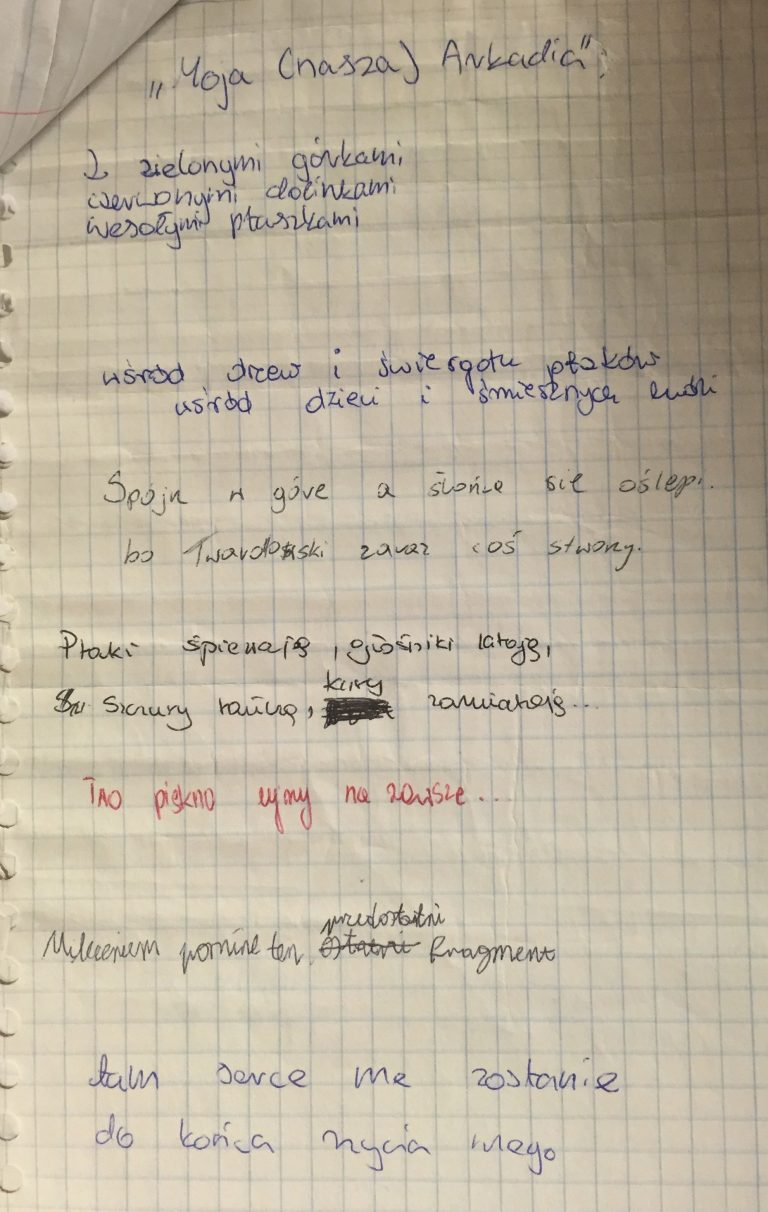 „Moja (nasza) Arkadia":
Z zielonymi górkami
czerwonymi dolinkami
wesołymi ptaszkami
wśród drzew i świergotu ptaków
wśród dzieci i śmiesznych ludzi
Spójrz w górę a słońce się oślepi.
bo Twardowski zaraz coś stworzy.
Ptaki śpiewają, głośniki latają,
Szczury tańczą, kury zamiatają...
Trwo piękno żyjmy na zawsze...
Milczeniem pominę ten przedostatni fragment
tam serce me zostanie
do końca rzycia mego